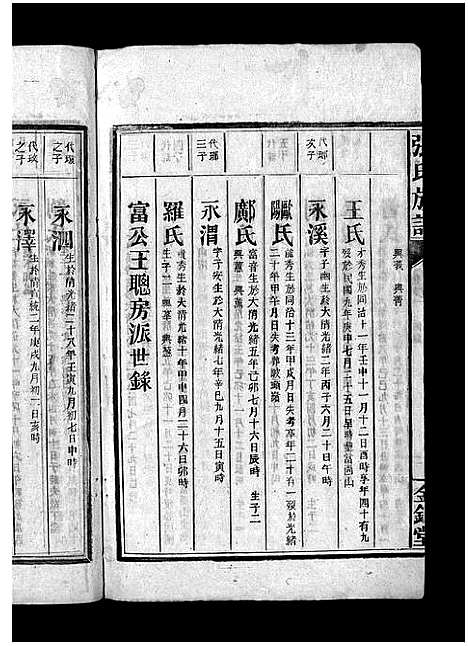 張氏族譜
金鑑堂
興義 興書
王氏
才秀生於同治十一年壬申十一月十二日酉時享年四十有九
歿於民國九年庚申七月三十五日旱時
代鄉次子
永溪
字子 生於大清光緒二年丙子六月二十日午時
歐氏
秀生於同治十三年甲戌月日失考卒年二十有一歿於光緒
二十年甲午月日失考葬
鄺氏
富音生於大清光緒五年己卯七月十六日辰時 生子二
代鄉三子
永渭
字子安生於大清光緒七年辛巳九月十五日寅時
羅氏
秀生於大清光緒十年甲申四月二十六日卯時
生子
富公王聰房派世錄
代璇之子
永泗
生於清光緒二十八年壬寅九月初七日申時
代玫之子
永澤
生於清宣統二年庚戌九月初一日亥時